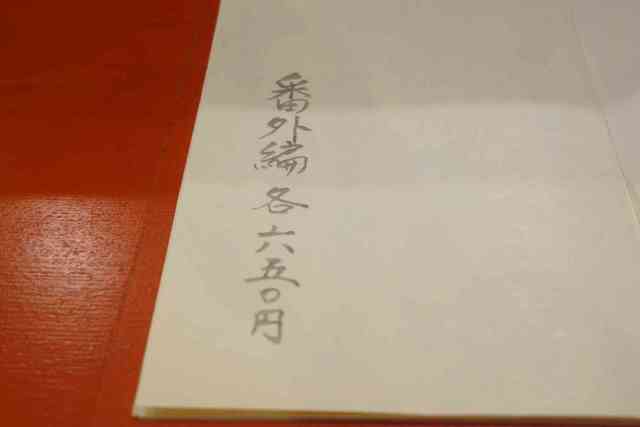 番外編 各六五〇円